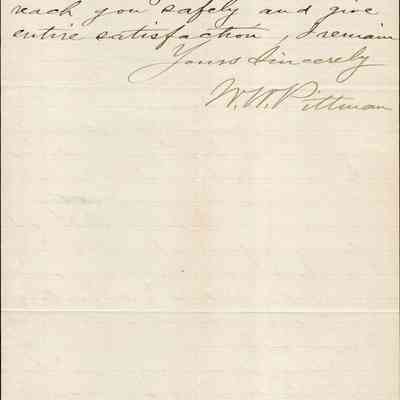 reach you safely and give
entire satisfaction, I remain
Yours Sincerely
W. W. Pittman